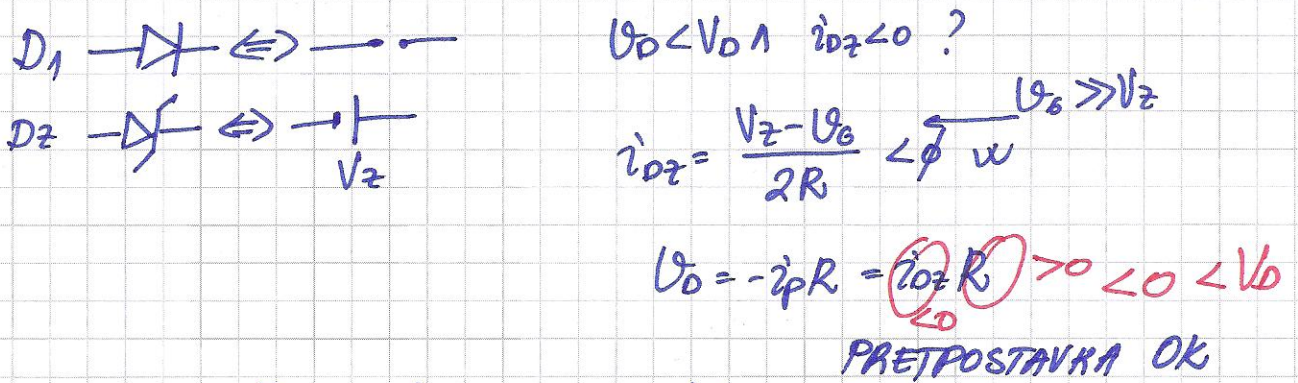 D1 ⇔
v_D < V_D ∧ i_DZ < 0 ?
DZ ⇔ VZ
i_DZ = (V_Z - v_G) / 2R < 0 v_G >> V_Z
v_D = -i_P R = i_DZ R > 0 < 0 < V_D
< 0
PRETPOSTAVKA OK